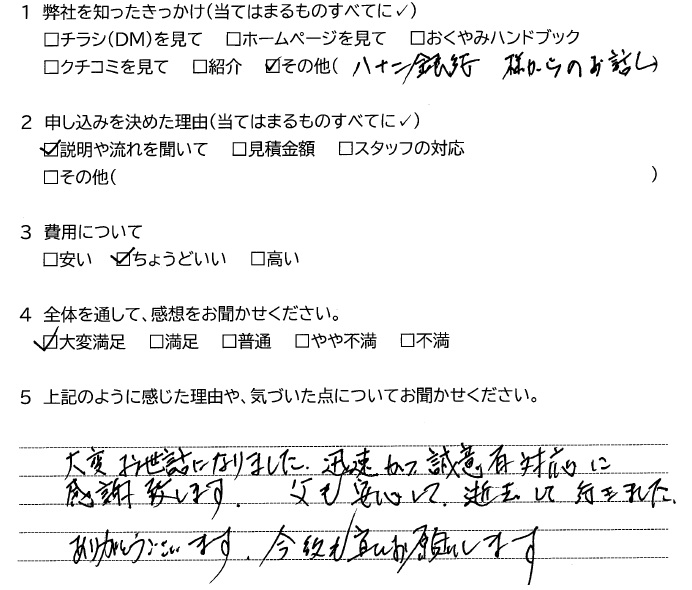 1 弊社を知ったきっかけ(当てはまるものすべてに✓)
□チラシ(DM)を見て □ホームページを見て □おくやみハンドブック
□クチコミを見て □紹介 ☑その他( 八十二銀行 様からのお話し)
2 申し込みを決めた理由(当てはまるものすべてに✓)
☑説明や流れを聞いて □見積金額 □スタッフの対応
□その他( )
3 費用について
□安い ☑ちょうどいい □高い
4 全体を通して、感想をお聞かせください。
☑大変満足 □満足 □普通 □やや不満 □不満
5 上記のように感じた理由や、気づいた点についてお聞かせください。
大変お世話になりました。迅速かつ誠意有対応に
感謝致します。 父も安心して、逝去して行きました。
ありがとうございます。今後も宜しくお願いします